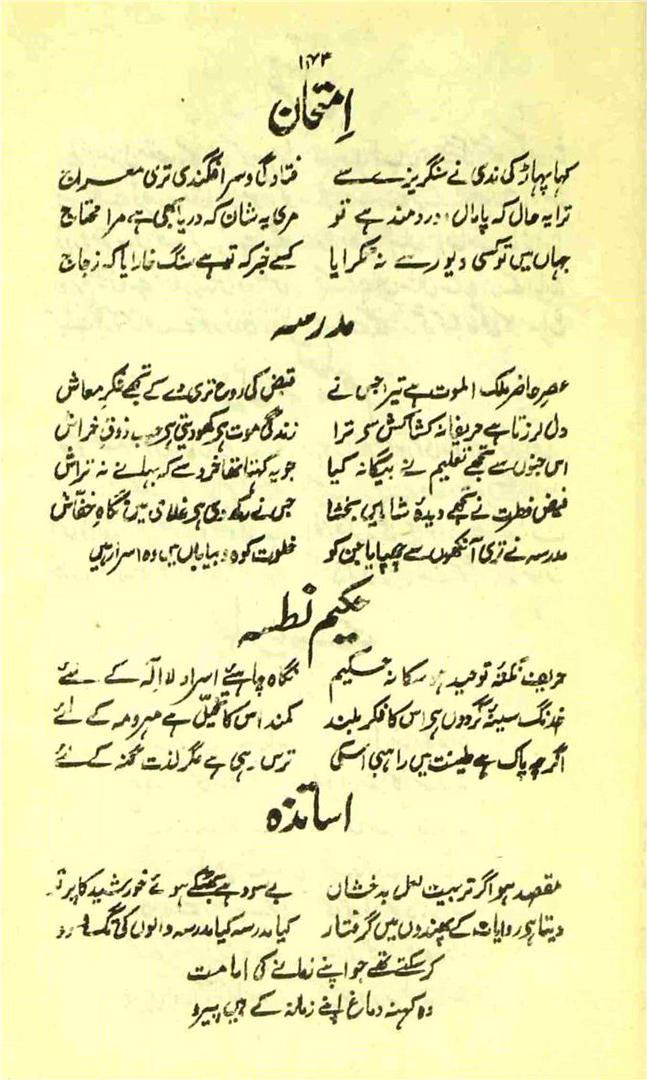 ۱۷۳
امتحان
کہا پہاڑ کی ندی نے سنگریزے سے فتادگی و سرافگندگی تری معراج
ترا یہ حال کہ پامال و دردمند ہے تو مری یہ شان کہ دریا بھی ہے مرا محتاج
جہاں میں تو کسی دیوار سے نہ ٹکرایا کسے خبر کہ تو ہے سنگ خارا یا کہ زجاج
مدرسہ
عصر حاضر ملک الموت ہے تیرا جس نے قبض کی روح تری دے کے تجھے فکر معاش
دل لرزتا ہے حریفانہ کشاکش سے ترا زندگی موت ہے کھو دیتی ہے جب ذوق خراش
اس جنوں سے تجھے تعلیم نے بیگانہ کیا جو یہ کہتا تھا خرد سے کہ بہانے نہ تراش
فیض فطرت نے تجھے دیدۂ شاہیں بخشا جس نے رکھ دی ہے غلامی میں نگاہ خفاش
مدرسہ نے تری آنکھوں سے چھپایا جن کو خلوت کوہ و بیاباں میں وہ اسرار ہیں
حکیم نطشہ
حریف نکتۂ توحید ہو سکا نہ حکیم نگاہ چاہئے اسرار لا الہ کے لئے
خدنگ سینۂ گردوں ہے اس کا فکر بلند کمند اس کا تخیل ہے مہر و مہ کے لئے
اگرچہ پاک ہے طینت میں راہبی اسکی ترس رہی ہے مگر لذت گنہ کے لئے
اساتذہ
مقصد ہو اگر تربیت لعل بدخشاں بے سود ہے بھٹکے ہوئے خورشید کا پرتو
دیتا ہے روایات کے پھندوں میں گرفتار کیا مدرسہ کیا مدرسہ والوں کی تگ و دو
کر سکتے تھے جو اپنے زمانے کی امامت
وہ کہنہ دماغ اپنے زمانہ کے ہیں پیرو